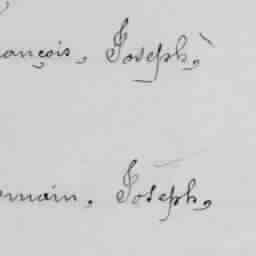 ançois, Joseph,
omain, Joseph,